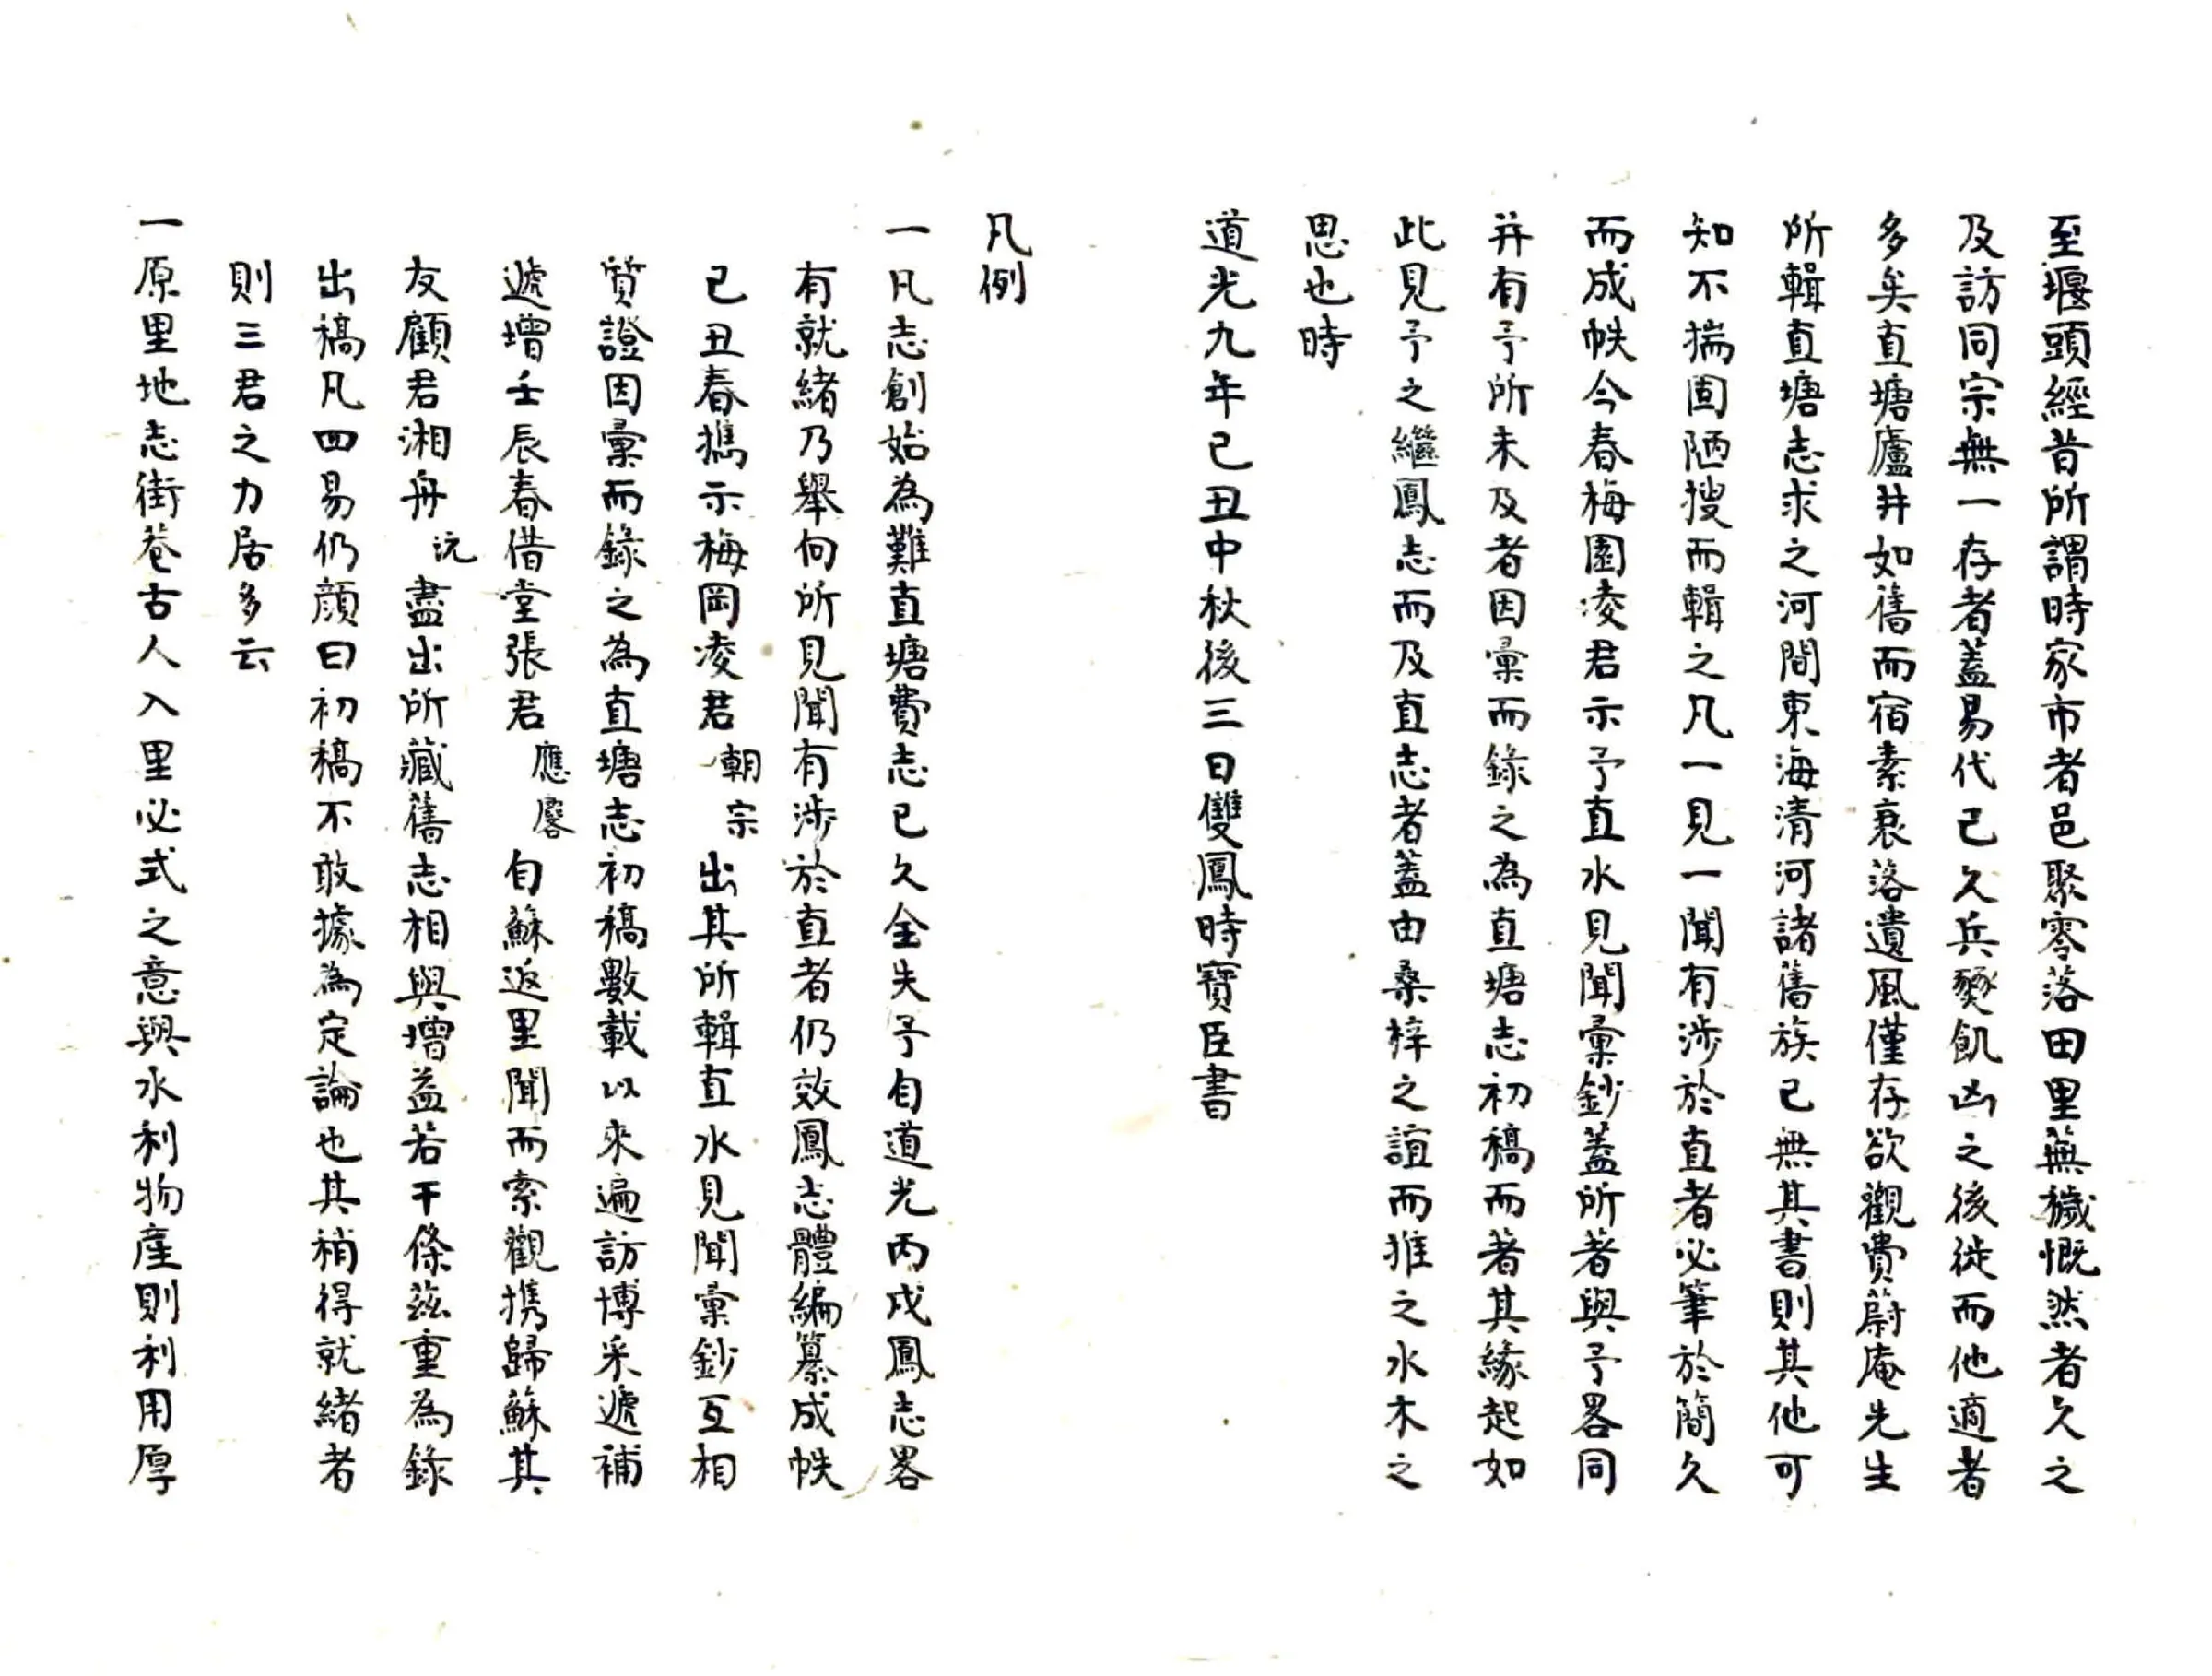 至堰頭經昔所謂時家市者邑聚零落田里蕪穢慨然者久之
及訪同宗無一存者蓋易代已久兵燹飢凶之後徙而他適者
多矣直塘廬井如舊而宿素衰落遺風僅存欲觀費蔚庵先生
所輯直塘志求之河間東海清河諸舊族已無其書則其他可
知不揣固陋搜而輯之凡一見一聞有涉於直者必筆於簡久
而成帙今春梅園凌君示予直水見聞彙鈔蓋所著與予畧同
并有予所未及者因彙而錄之為直塘志初稿而著其緣起如
此見予之繼鳳志而及直志者蓋由桑梓之誼而推之水木之
思也時
道光九年已丑中秋後三日雙鳳時寶臣書
凡例
一凡志創始為難直塘費志已久全失予自道光丙戌鳳志畧
有就緒乃舉向所見聞有涉於直者仍效鳳志體編纂成帙
已丑春攜示梅岡凌君朝宗出其所輯直水見聞彙鈔互相
質證因彙而錄之為直塘志初稿數載以來遍訪博采遞補
遞增壬辰春借堂張君應麐自蘇返里聞而索觀携歸蘇其
友顧君湘舟沅盡出所藏舊志相與增益若干條茲重為錄
出稿凡四易仍顏曰初稿不敢據為定論也其稍得就緒者
則三君之力居多云
一原里地志街巷古人入里必式之意與水利物產則利用厚